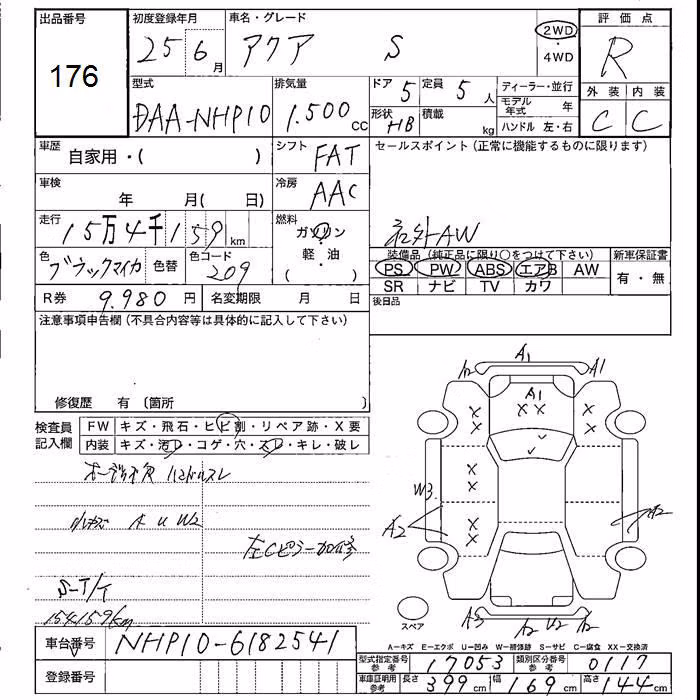 出品番号
176
初度登録年月
25 6月
車名・グレード
アクア S
2WD
・
4WD
評価点
R
外装 内装
C C
型式
DAA-NHP10
排気量
1.500cc
ドア 5
定員 5人
形状 HB
積載 kg
ディーラー・並行
モデル年式 年
ハンドル 左・右
車歴 自家用・( )
シフト FAT
セールスポイント(正常に機能するものに限ります)
社外AW
車検 年 月( 日)
冷房 AAC
走行 15万4千159km
燃料 ガソリン
軽・油
( )
色 ブラックマイカ 色替
色コード 209
装備品(純正品に限り○をつけて下さい)
PS PW ABS エアB AW
SR ナビ TV カワ
新車保証書
有・無
R券 9.980円
名変期限 月 日
後日品
注意事項申告欄(不具合内容等は具体的に記入して下さい)
修復歴 有(箇所 )
検査員記入欄
FW キズ・飛石・ヒビ割・リペア跡・X要
内装 キズ・汚レ・コゲ・穴・スレ・キレ・破レ
ハンドルスレ
A U W2
左Cピラー加修
S-T/T
154159km
A1
A2
A1
A1
X X
X
X
X
X
X
X
W3
X
X
A2
A2
A3
A2 U2 A2
スペア
A-キズ E-エクボ U-凹み W-補修跡 S-サビ C-腐食 XX-交換済
車台番号 NHP10-6182541
登録番号
型式指定番号 参考 17053
類別区分番号 参考 0117
車庫証明用 参考 長さ 399cm 幅 169cm 高さ 144cm